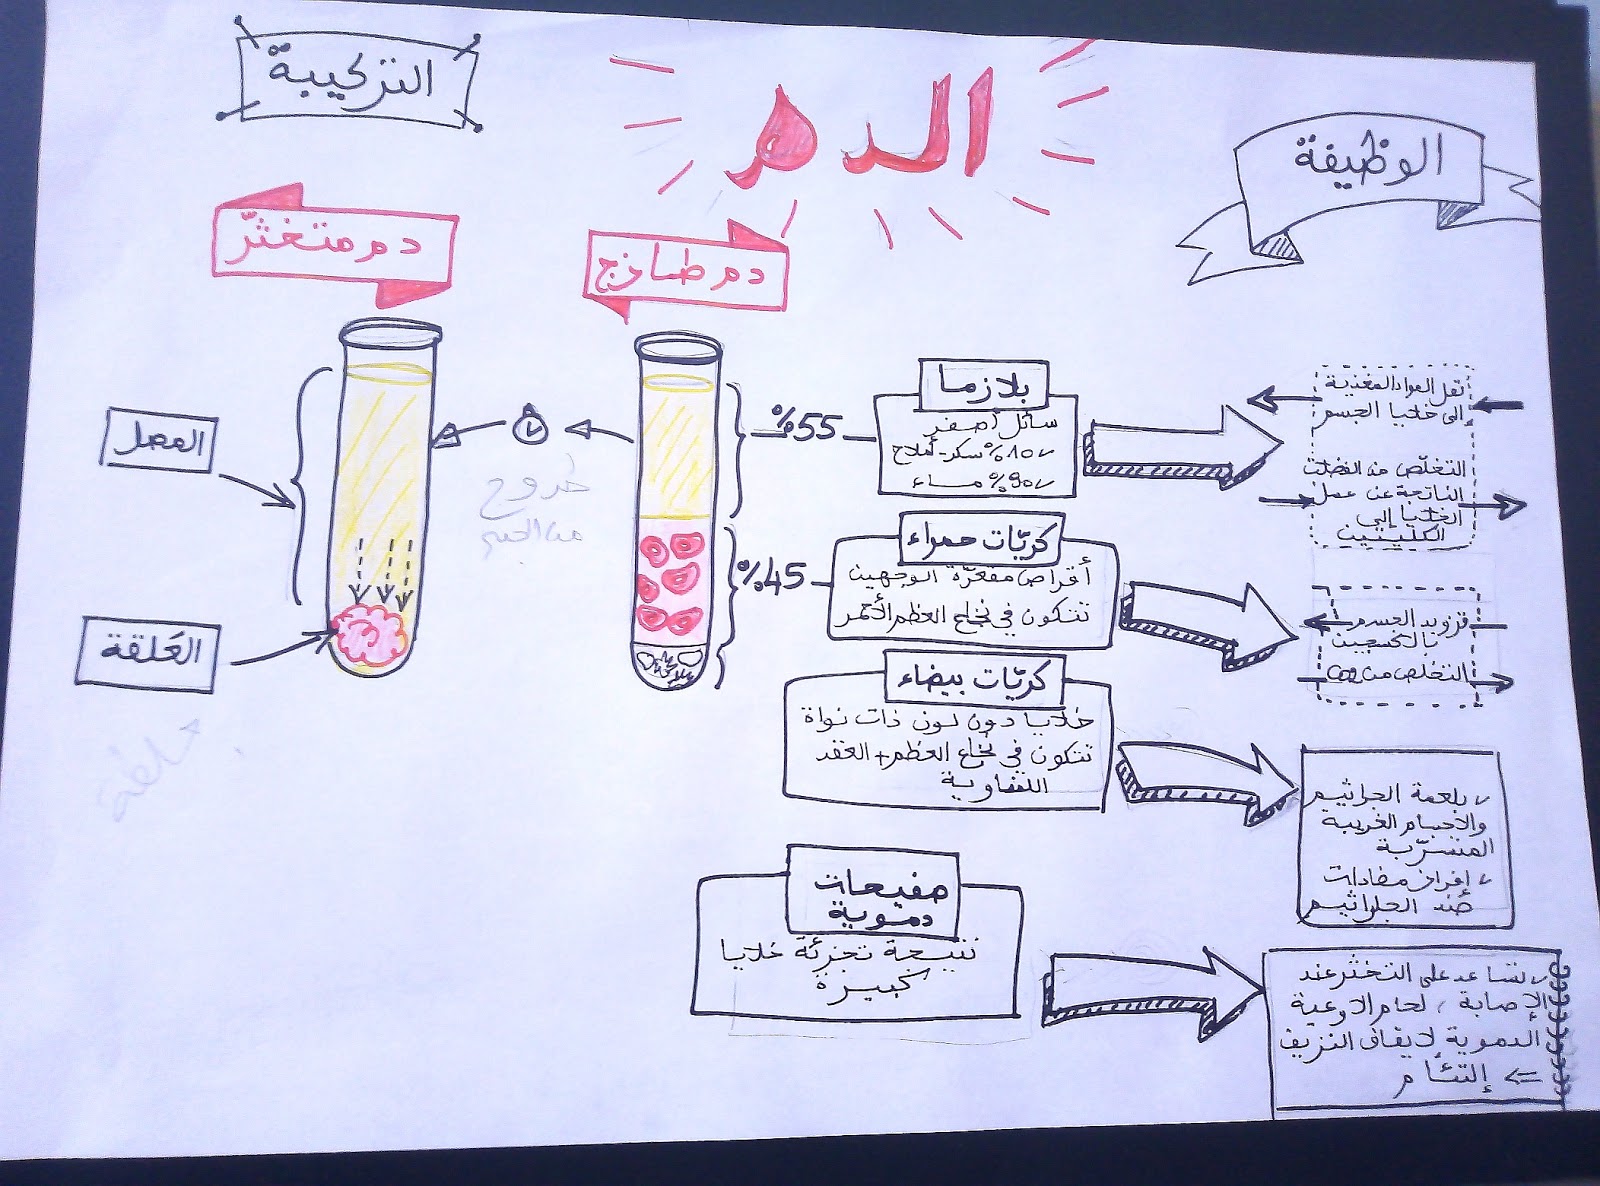 الدم
الوظيفة
التركيبة
دم طازج
دم متخثّر
بلازما
سائل أصفر
10% سكر - أملاح
90% ماء
%55
نقل المواد المغذية
إلى خلايا الجسم
التخلّص من الفضلات
الناتجة عن عمل
الخلايا إلى
الكليتين
كريّات حمراء
أقراص مقعّرة الوجهين
تتكون في نخاع العظم الأحمر
%45
تزويد الجسم
بالأكسجين
التخلص من CO2
كريّات بيضاء
خلايا دون لون ذات نواة
تتكون في نخاع العظم + العقد
اللمفاوية
بلعمة الجراثيم
والاجسام الغريبة
المتسرّبة
إفراز مضادات
ضد الجراثيم
صفيحات
دموية
نتيجة تجزئة خلايا
كبيرة
تساعد على التخثر عند
الإصابة ، لحام الاوعية
الدموية لايقاف النزيف
<= إلتئام
خروج
من الجسم
المصل
العَلقة